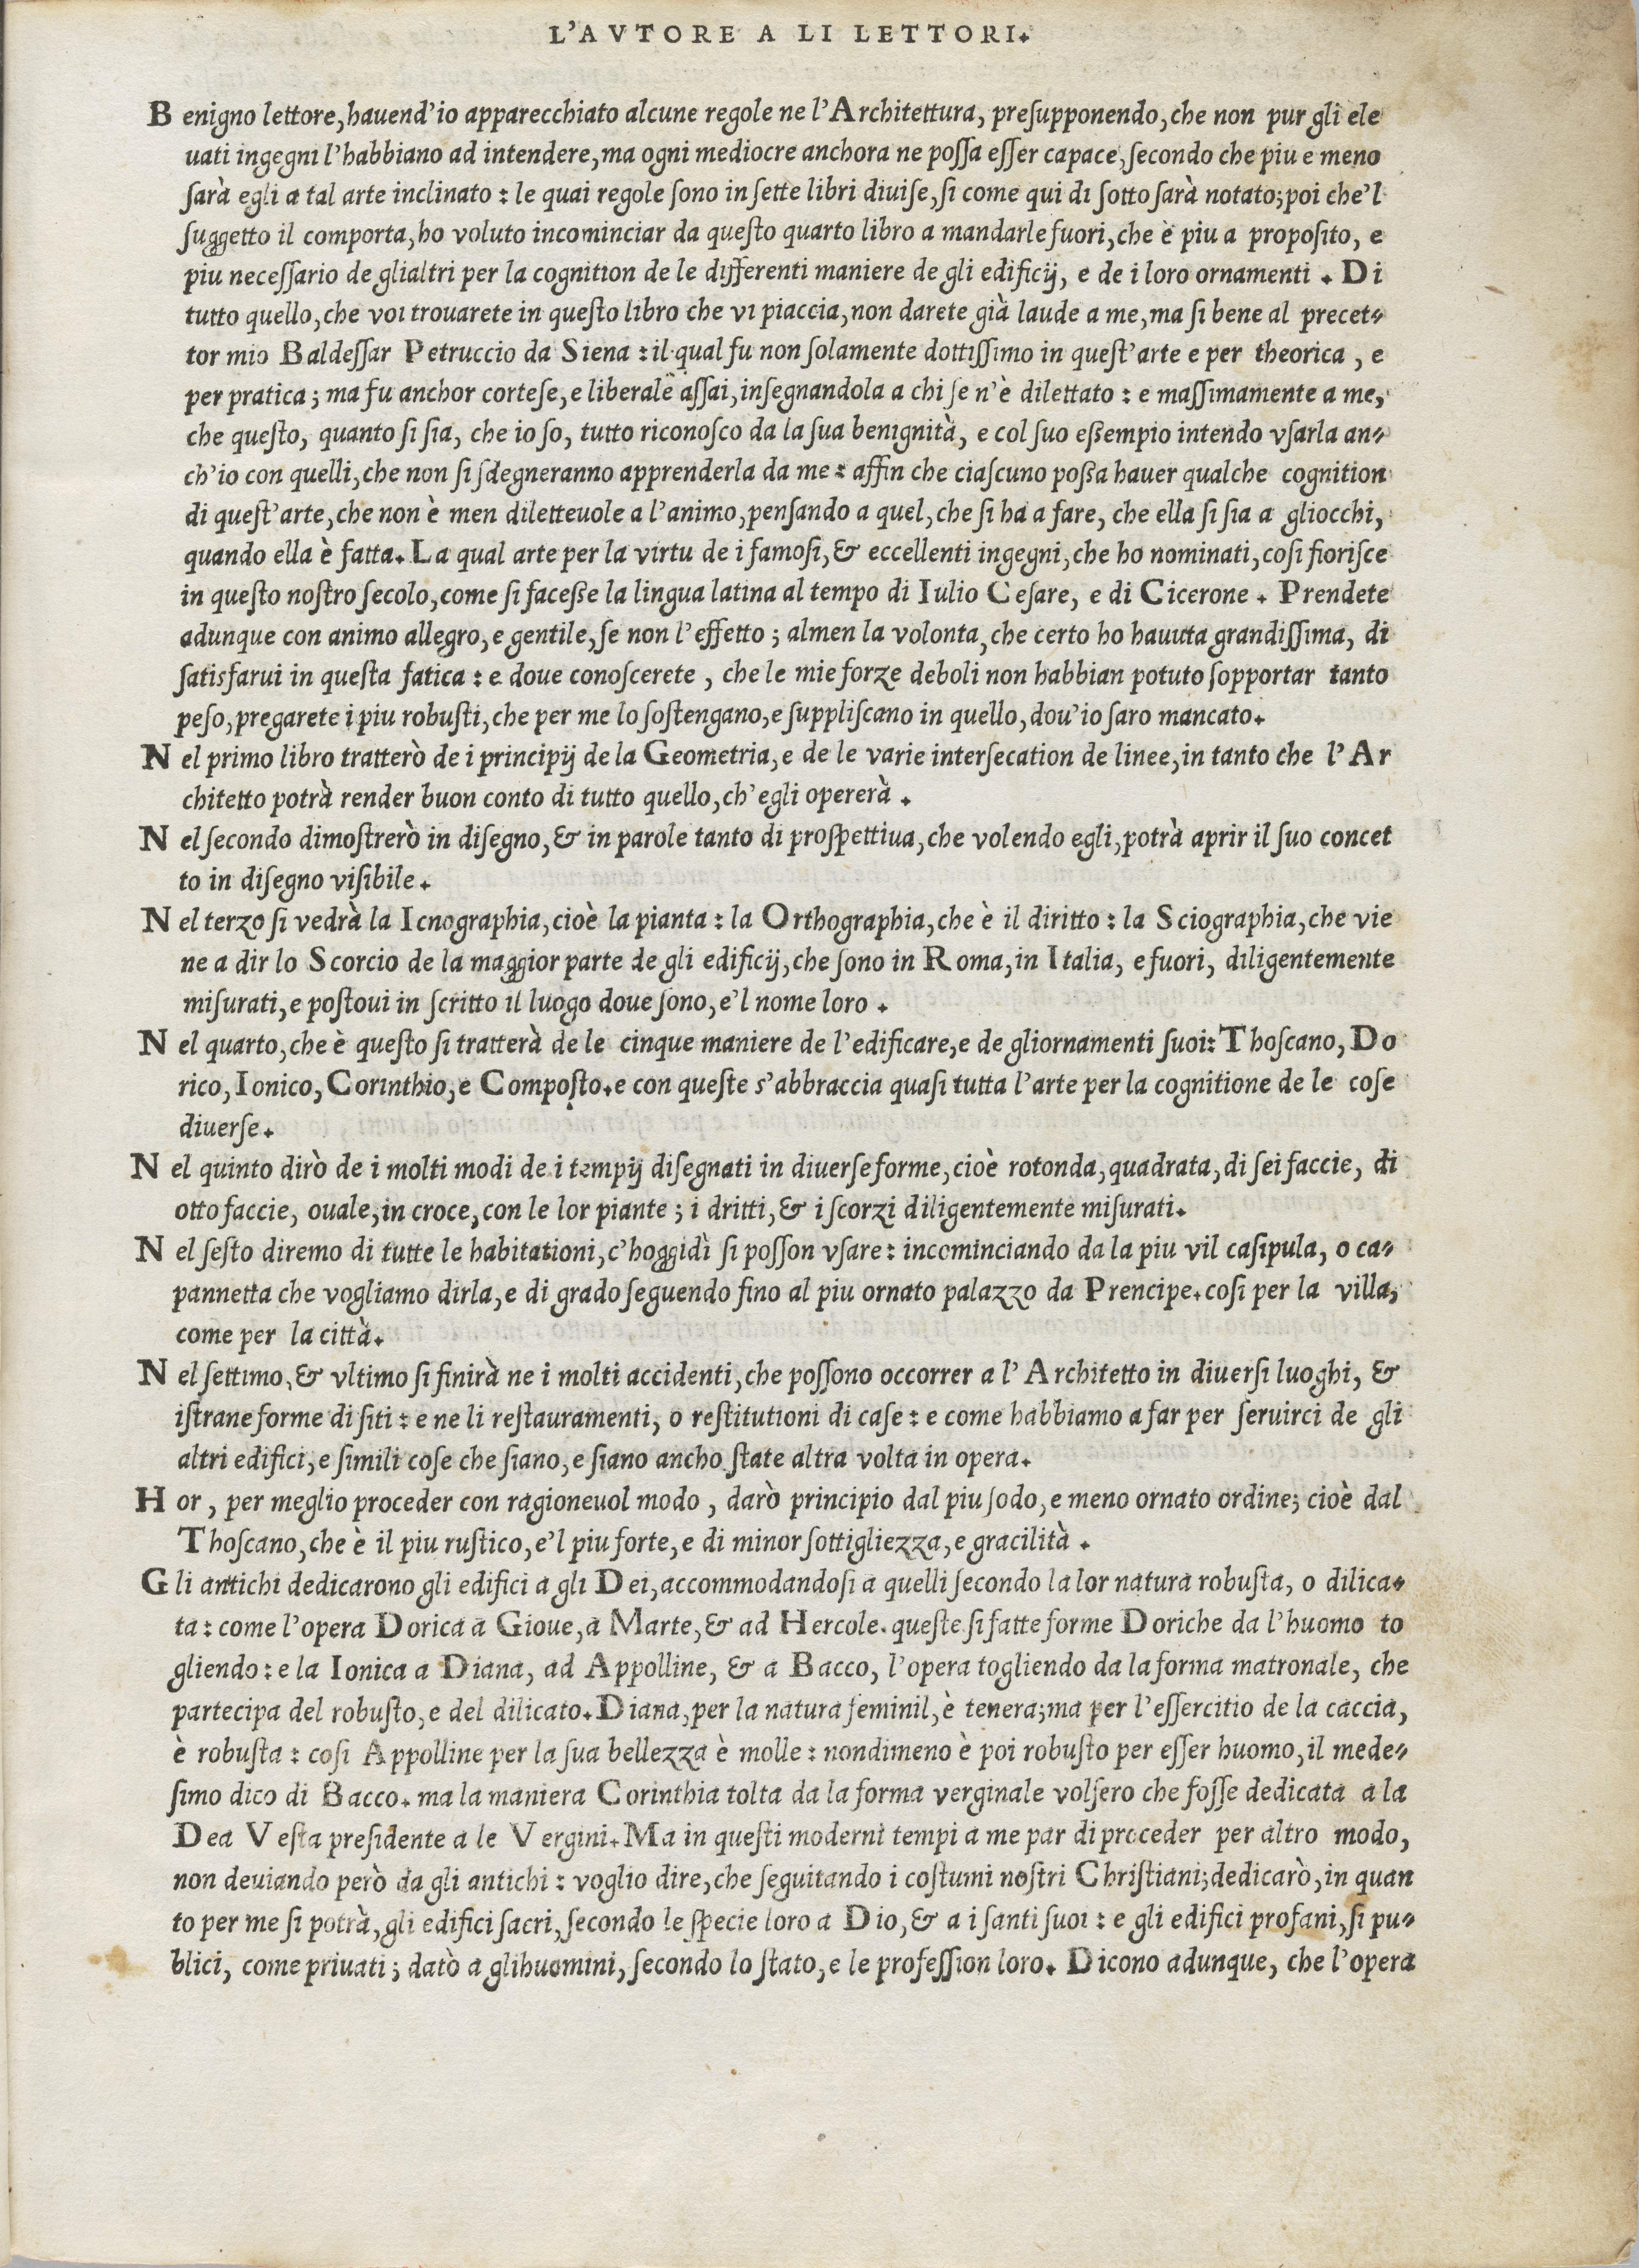 L'AVTORE A LI LETTORI.
Benigno lettore, hauend'io apparecchiato alcune regole ne l'Architettura, preſupponendo, che non pur gli ele
uati ingegni l'habbiano ad intendere, ma ogni mediocre anchora ne poſſa eſſer capace, ſecondo che piu e meno
ſarà egli a tal arte inclinato : le quai regole ſono in ſette libri diuiſe, ſi come qui di ſotto ſarà notato; poi che'l
ſuggetto il comporta, ho voluto incominciar da queſto quarto libro a mandarle fuori, che è piu a propoſito, e
piu neceſſario de glialtri per la cognition de le differenti maniere de gli edificij, e de i loro ornamenti . Di
tutto quello, che voi trouarete in queſto libro che vi piaccia, non darete già laude a me, ma ſi bene al precet-
tor mio Baldeſſar Petruccio da Siena : il qual fu non ſolamente dottiſſimo in queſt'arte e per theorica , e
per pratica ; ma fu anchor corteſe, e liberale aſſai, inſegnandola a chi ſe n'è dilettato : e maſſimamente a me,
che queſto, quanto ſi ſia, che io ſo, tutto riconoſco da la ſua benignità, e col ſuo eßempio intendo vſarla an-
ch'io con quelli, che non ſi ſdegneranno apprenderla da me : affin che ciaſcuno poßa hauer qualche cognition
di queſt'arte, che non è men diletteuole a l'animo, penſando a quel, che ſi ha a fare, che ella ſi ſia a gliocchi,
quando ella è fatta. La qual arte per la virtu de i famoſi, & eccellenti ingegni, che ho nominati, coſi fioriſce
in queſto noſtro ſecolo, come ſi faceße la lingua latina al tempo di Iulio Ceſare, e di Cicerone . Prendete
adunque con animo allegro, e gentile, ſe non l'effetto ; almen la volonta, che certo ho hauuta grandiſſima, di
ſatisfarui in queſta fatica : e doue conoſcerete , che le mie forze deboli non habbian potuto ſopportar tanto
peſo, pregarete i piu robuſti, che per me lo ſoſtengano, e suppliſcano in quello, dou'io ſaro mancato.
Nel primo libro tratterò de i principij de la Geometria, e de le varie interſecation de linee, in tanto che l'Ar
chitetto potrà render buon conto di tutto quello, ch'egli opererà .
Nel ſecondo dimoſtrerò in diſegno, & in parole tanto di proſpettiua, che volendo egli, potrà aprir il ſuo concet
to in diſegno viſibile .
Nel terzo ſi vedrà la Icnographia, cioè la pianta : la Orthographia, che è il diritto : la Sciographia, che vie
ne a dir lo Scorcio de la maggior parte de gli edificij, che ſono in Roma, in Italia, e fuori, diligentemente
miſurati, e poſtoui in ſcritto il luogo doue ſono, e'l nome loro .
Nel quarto, che è queſto ſi tratterà de le cinque maniere de l'edificare, e de gliornamenti ſuoi: Thoſcano, Do
rico, Ionico, Corinthio, e Compoſto. e con queſte s'abbraccia quaſi tutta l'arte per la cognitione de le coſe
diuerſe .
Nel quinto dirò de i molti modi de i tempij diſegnati in diuerſe forme, cioè rotonda, quadrata, di ſei faccie, di
otto faccie, ouale, in croce, con le lor piante ; i dritti, & i ſcorzi diligentemente miſurati.
Nel ſeſto diremo di tutte le habitationi, c'hoggidì ſi poſſon vſare : incominciando da la piu vil caſipula, o ca-
pannetta che vogliamo dirla, e di grado ſeguendo fino al piu ornato palazzo da Prencipe. coſi per la villa,
come per la città.
Nel ſettimo, & vltimo ſi finirà ne i molti accidenti, che poſſono occorrer a l'Architetto in diuerſi luoghi, &
iſtrane forme di ſiti : e ne li reſtauramenti, o reſtitutioni di caſe : e come habbiamo a far per ſeruirci de gli
altri edifici, e ſimili coſe che ſiano, e ſiano ancho ſtate altra volta in opera.
Hor , per meglio proceder con ragioneuol modo , darò principio dal piu ſodo, e meno ornato ordine; cioè dal
Thoſcano, che è il piu ruſtico, e'l piu forte, e di minor ſottigliezza, e gracilità .
Gli antichi dedicarono gli edifici a gli Dei, accommodandoſi a quelli ſecondo la lor natura robuſta, o dilica-
ta : come l'opera Dorica a Gioue, a Marte, & ad Hercole. queſte ſi fatte forme Doriche da l'huomo to
gliendo : e la Ionica a Diana, ad Appolline, & a Bacco, l'opera togliendo da la forma matronale, che
partecipa del robuſto, e del dilicato. Diana, per la natura feminil, è tenera; ma per l'eſſercitio de la caccia,
è robuſta : coſi Appolline per la ſua bellezza è molle : nondimeno è poi robuſto per eſſer huomo, il mede-
ſimo dico di Bacco. ma la maniera Corinthia tolta da la forma verginale volſero che foſſe dedicata a la
Dea Veſta preſidente a le Vergini. Ma in queſti moderni tempi a me par di proceder per altro modo,
non deuiando però da gli antichi : voglio dire, che ſeguitando i coſtumi noſtri Chriſtiani; dedicarò, in quan
to per me ſi potrà, gli edifici ſacri, ſecondo le ſpecie loro a Dio, & a i ſanti ſuoi : e gli edifici profani, ſi pu-
blici, come priuati ; datò a glihuomini, ſecondo lo ſtato, e le profeſſion loro. Dicono adunque, che l'opera